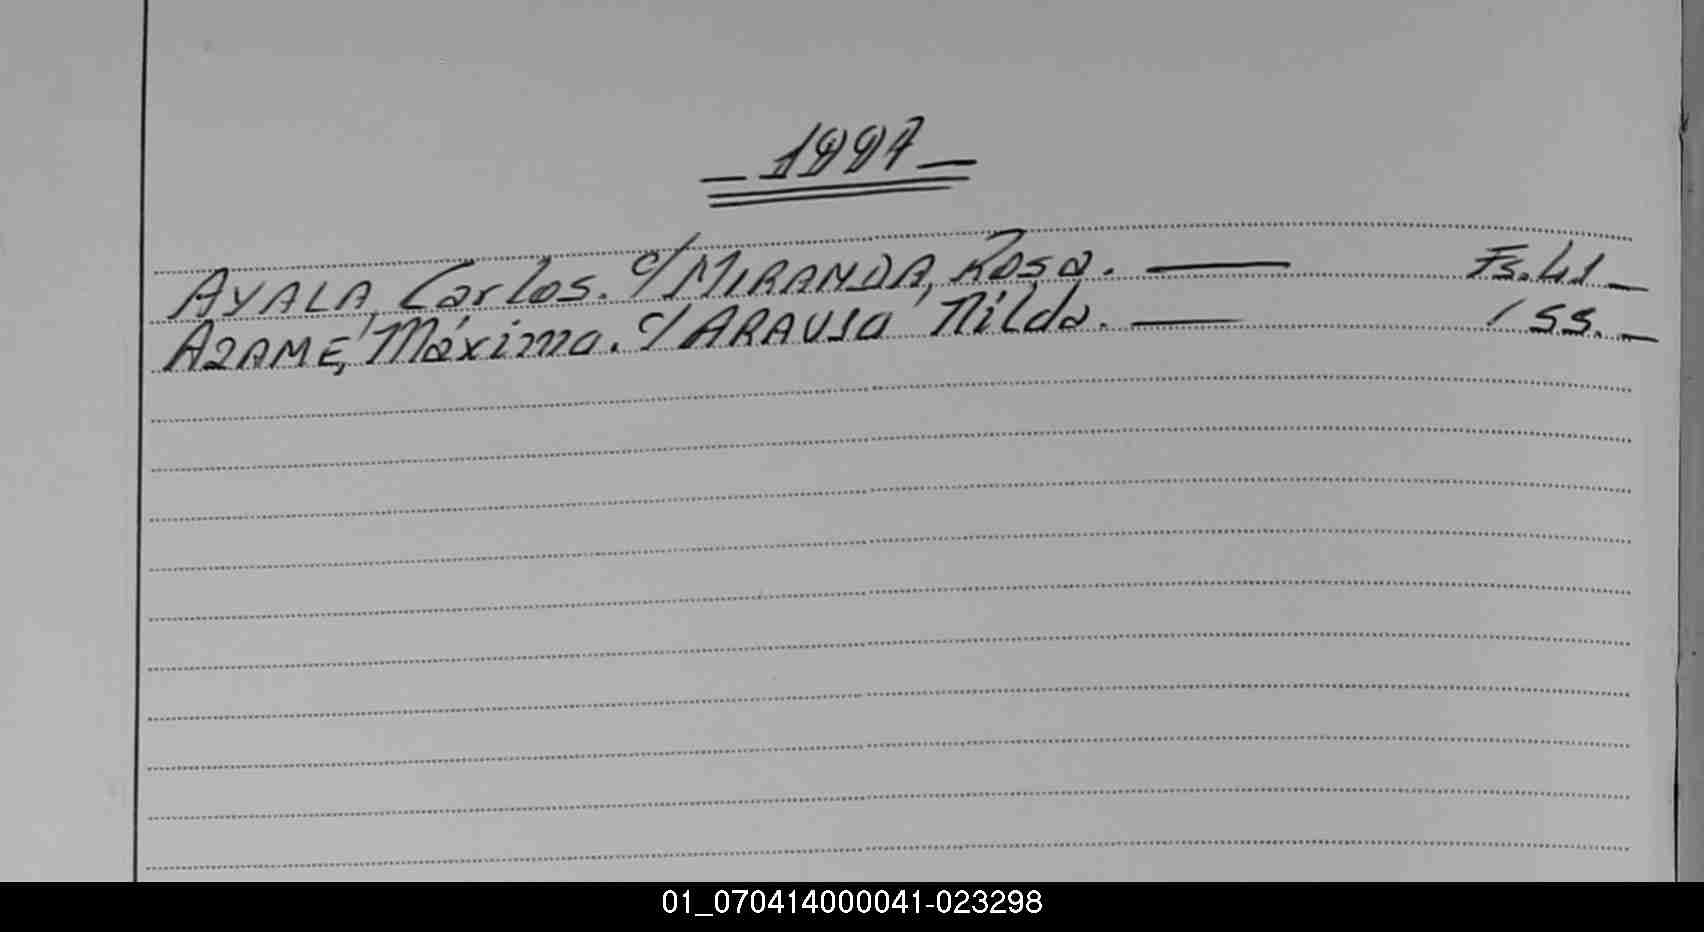 _ 1997 _
AYALA, Carlos. c/ MIRANDA, Rosa. — Fs. 41 _
AZAME, Máximo. c/ ARAUJO Nilda. — / 55. _
01_070414000041-023298